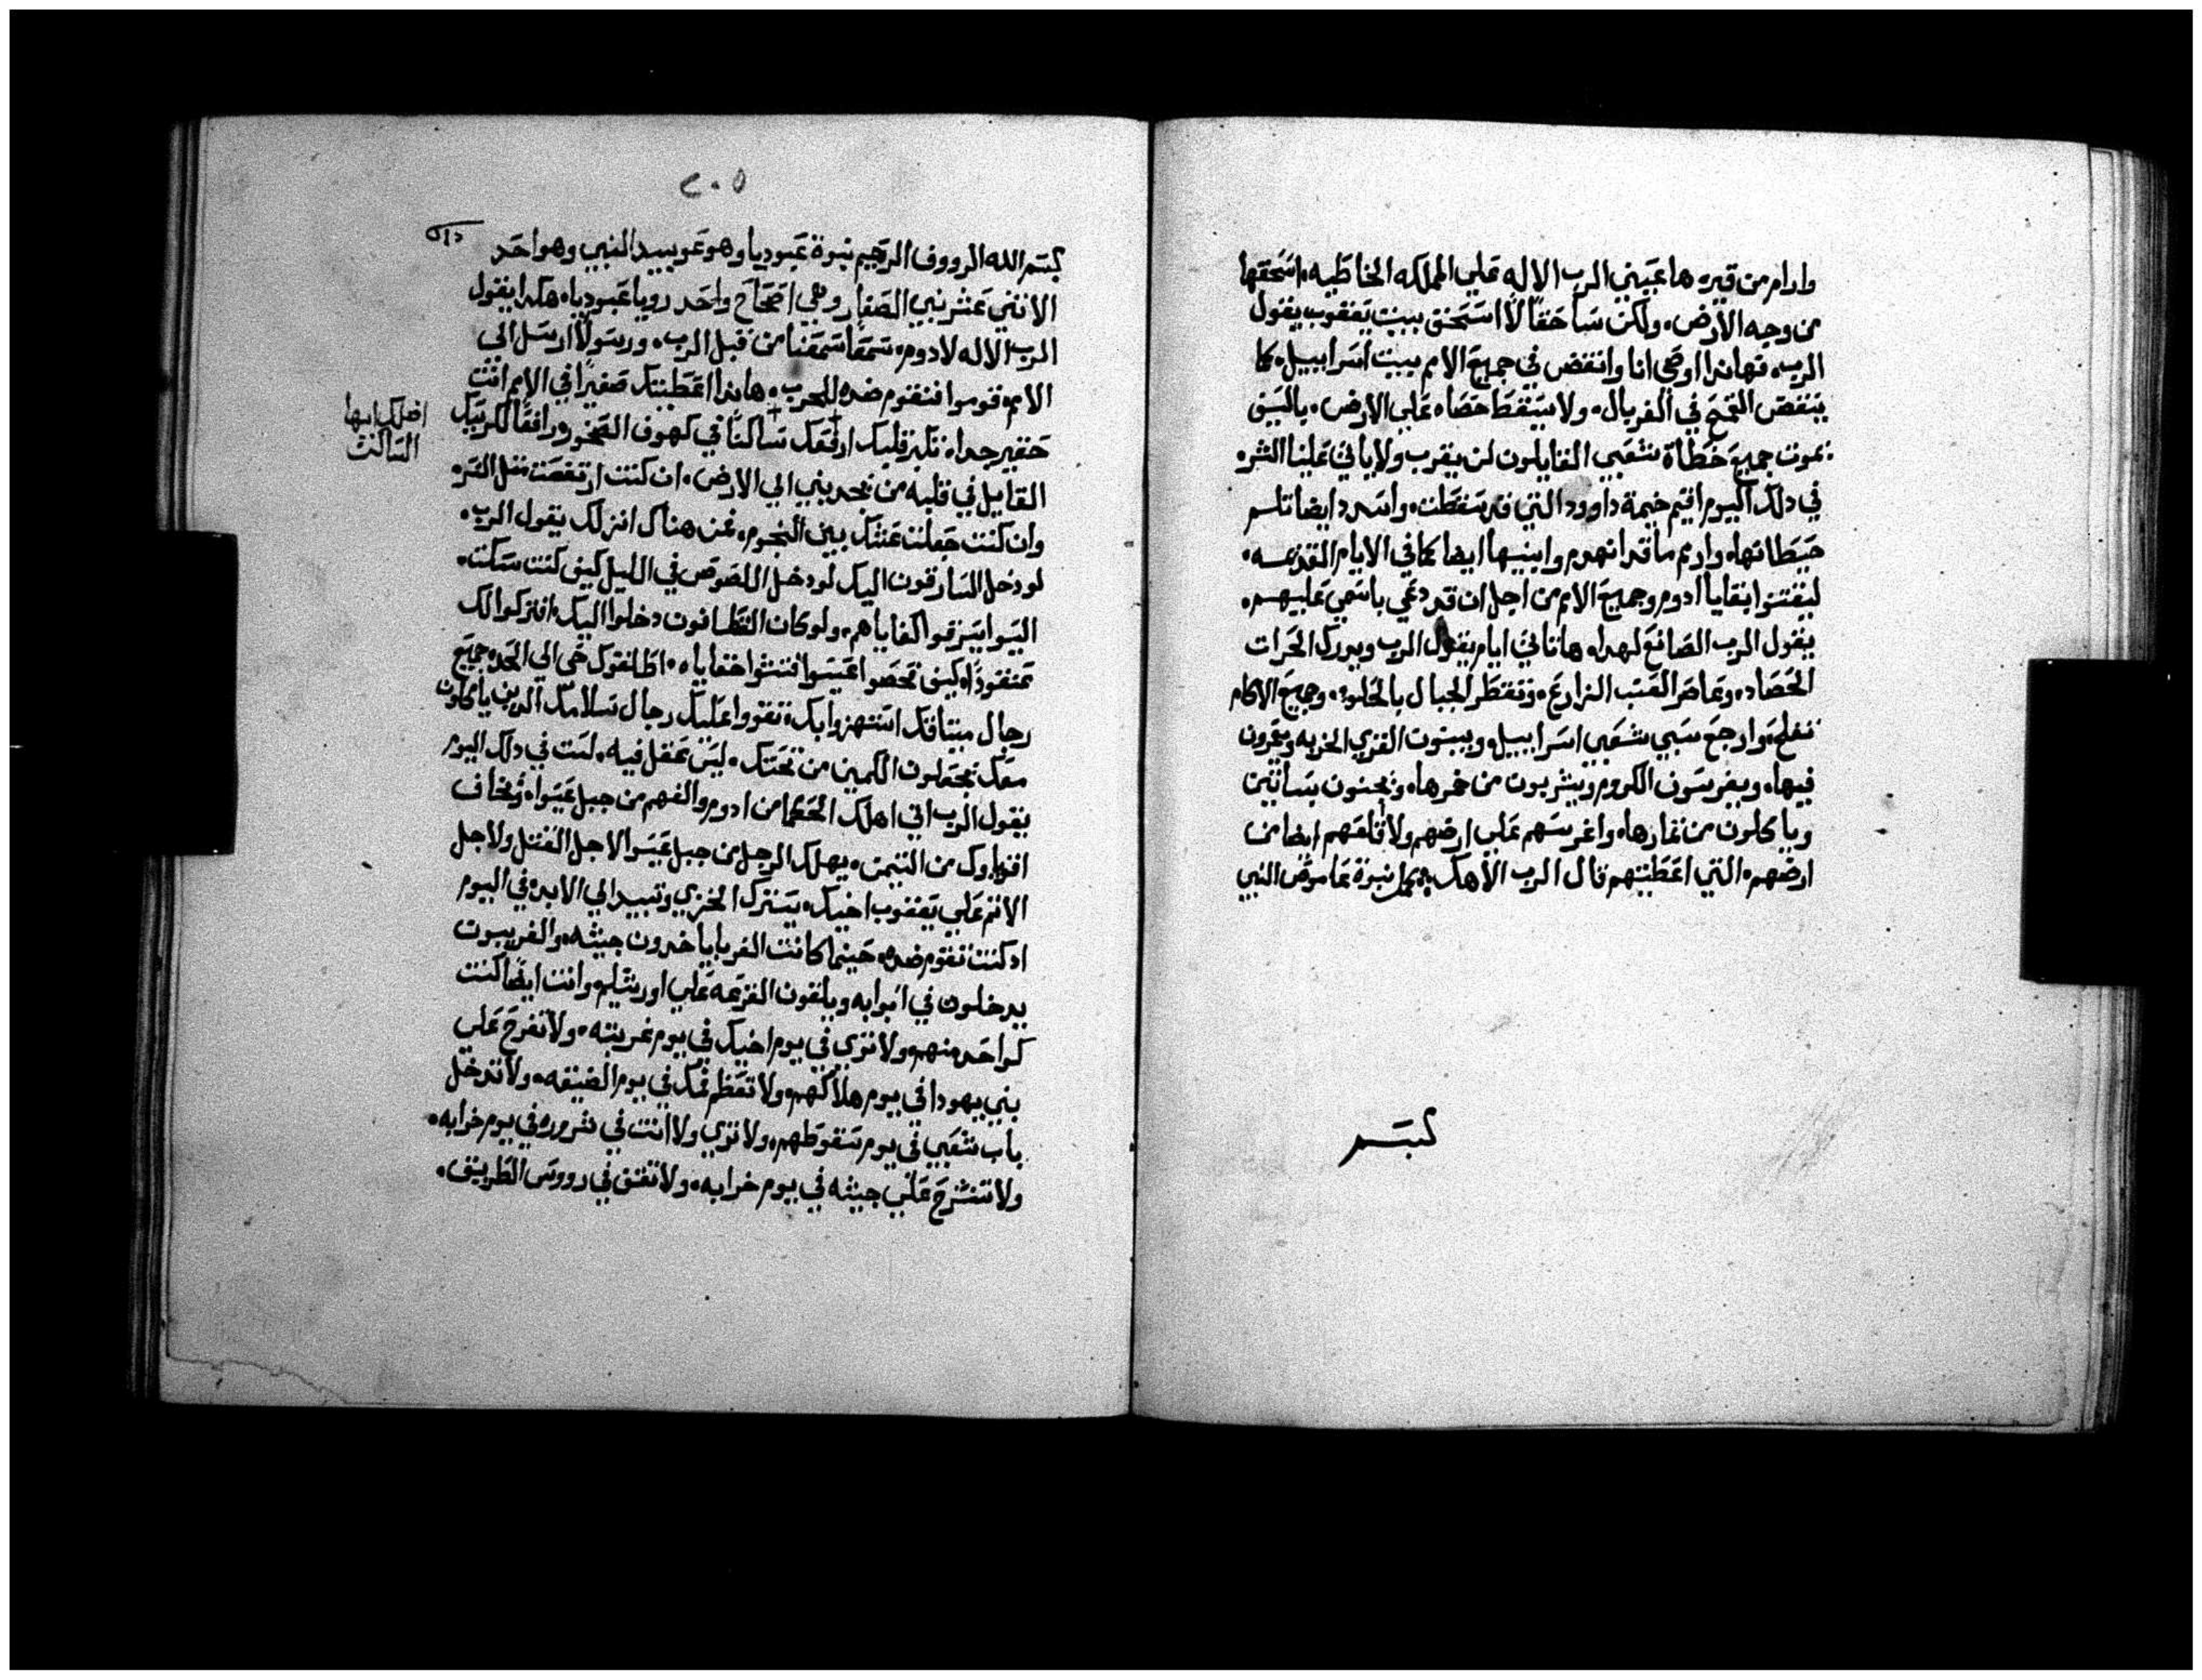 وارام من قيره ها عيني الرب الاله علي المملكه الخاطيه، اسحقها
من وجه الارض، ولكن سا حقًا لا استحق بيت يعقوب يقول
الرب، فهاندا اوصي انا وانفض في جميع الامم بيت اسراييل، كما
ينفض القمح في الغربال، ولا يسقط حصاه علي الارض، بالسيف
يموت جميع خطاة شعبي القايلون لن يقرب ولا ياتي علينا الشره
في دلك اليوم اقيم خيمة داوود التي قد سقطت، واسدد ايضا تلم
حيطانها، واريم ما قد انهدم وابنيها ايضا كما في الايام القديمه،
ليقتنوا بقايا ادوم وجميع الامم من اجل ان قد دعي باسمي عليهم،
يقول الرب الصانع لهدا، ها تاتي ايام يقول الرب ويدرك الحرات
الحصاد، وعاصر العنب الزارع، وتقطر الجبال بالحلاوه، وجميع الاكام
تفلح، وارجع سبي شعبي اسراييل، ويبنون القري الخربه ويعرون
فيها، ويغرسون الكروم ويشربون من خمرها، ويجنون بساتين
وياكلون من تمارها، واغرسهم علي ارضهم ولا اقلعهم ايضا من
ارضهم، التي اعطيتهم قال الرب الاهك، كمل نبوة عاموض النبي
بسم
٢٠٥
بسم الله الرووف الرحيم نبوة عبوديا وهو عوبيد النبي وهو احد
الاتني عشر نبي الصغار وهي اصحاح واحد رويا عبوديا، هكدا يقول
الرب الاله لادوم، سمعًا سمعنا من قبل الرب، ورسولا ارسل الي
الامم، قوموا فنقوم ضده للحرب، هاندا اعطيتك صغيرًا في الامم انت
حقير جدا، تكبر قلبك ارفعك ساكنًا في كهوف الصخور ورافعًا كرسيك
افعلك ايها
الساكن
القايل في قلبه من يحدرني الي الارض، ان كنت ارتفعت متل النسره
وان كنت جعلت عشك بين النجوم، فمن هناك انزلك يقول الرب،
لو دخل السارقون اليك لو دخل اللصوص في الليل كيف كنت سكت،
اليسوا يسرقوا كفاياهم، ولو كان القطافون دخلوا اليك، افتركوا لك
عنقودًا، كيف فحصوا عيسوا فتشوا خفاياه، اطلقوك حتي الي الحد، جميع
رجال ميتاقك استهزوا بك، تقووا عليك رجال سلامك الدين ياكلون
معك يجعلون الكمين من تحتك، ليس عقل فيه، لست في دلك اليوم
يقول الرب اني اهلك الحكما من ادوم والفهم من جبل عيسوا، وتخاف
اقوياوك من التيمن، يهلك الرجل من جبل عيسوا لاجل القتل ولاجل
الاتم علي يعقوب اخيك، يسترك الخزي وتبيد الي الابد، في اليوم
اد كنت تقوم ضده، حينما كانت الغربا ياخدون جيشه، والغريبون
يدخلون في ابوابه ويلقون القرعه علي اورشليم وانت ايضًا كنت
كواحد منهم، ولا تزي في يوم اخيك في يوم غربته، ولا تفرح علي
بني يهودا في يوم هلاكهم، ولا تعظم فمك في يوم الضيقه، ولا تدخل
باب شعبي في يوم سقوطهم، ولا تزي ولا انت في شروره في يوم خرابه،
ولا تنشرح علي جيشه في يوم خرابه، ولا تقف في رووس الطريق،